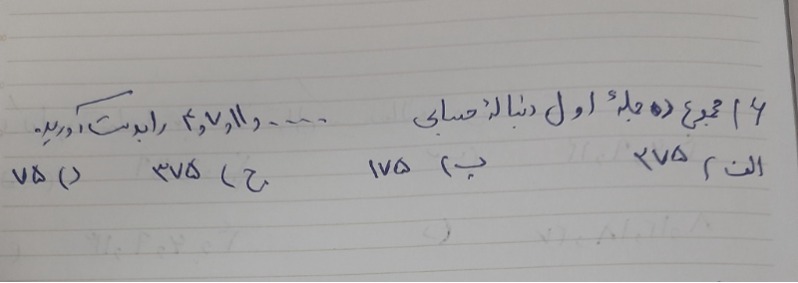 ۶) مجموع ده جملهٔ اول دنبالهٔ حسابی ..... و ۱۱ و ۷ و ۴ را بدست آورید.
الف) ۲۷۵ ب) ۱۷۵ ج) ۳۷۵ د) ۷۵